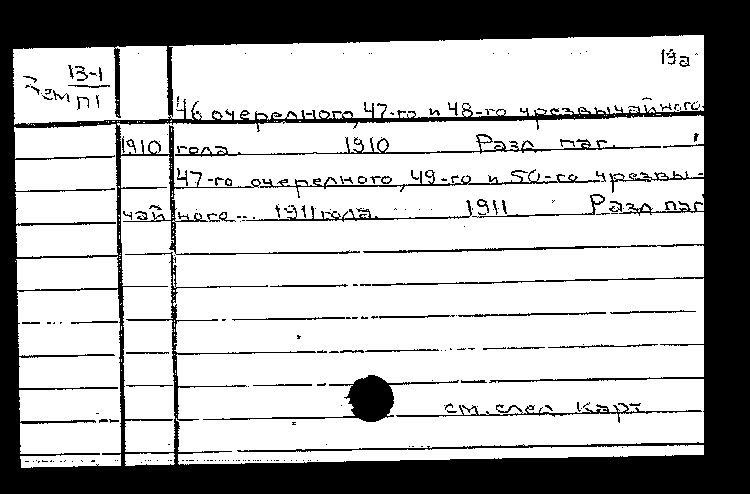 19а
13-1
Зем П1
46 очередного, 47-го и 48-го чрезвычайного
1910 года. 1910 Разд паг.
47-го очередного, 49-го и 50-го чрезвы-
чайного... 1911 года. 1911 Разд паг
см. след карт